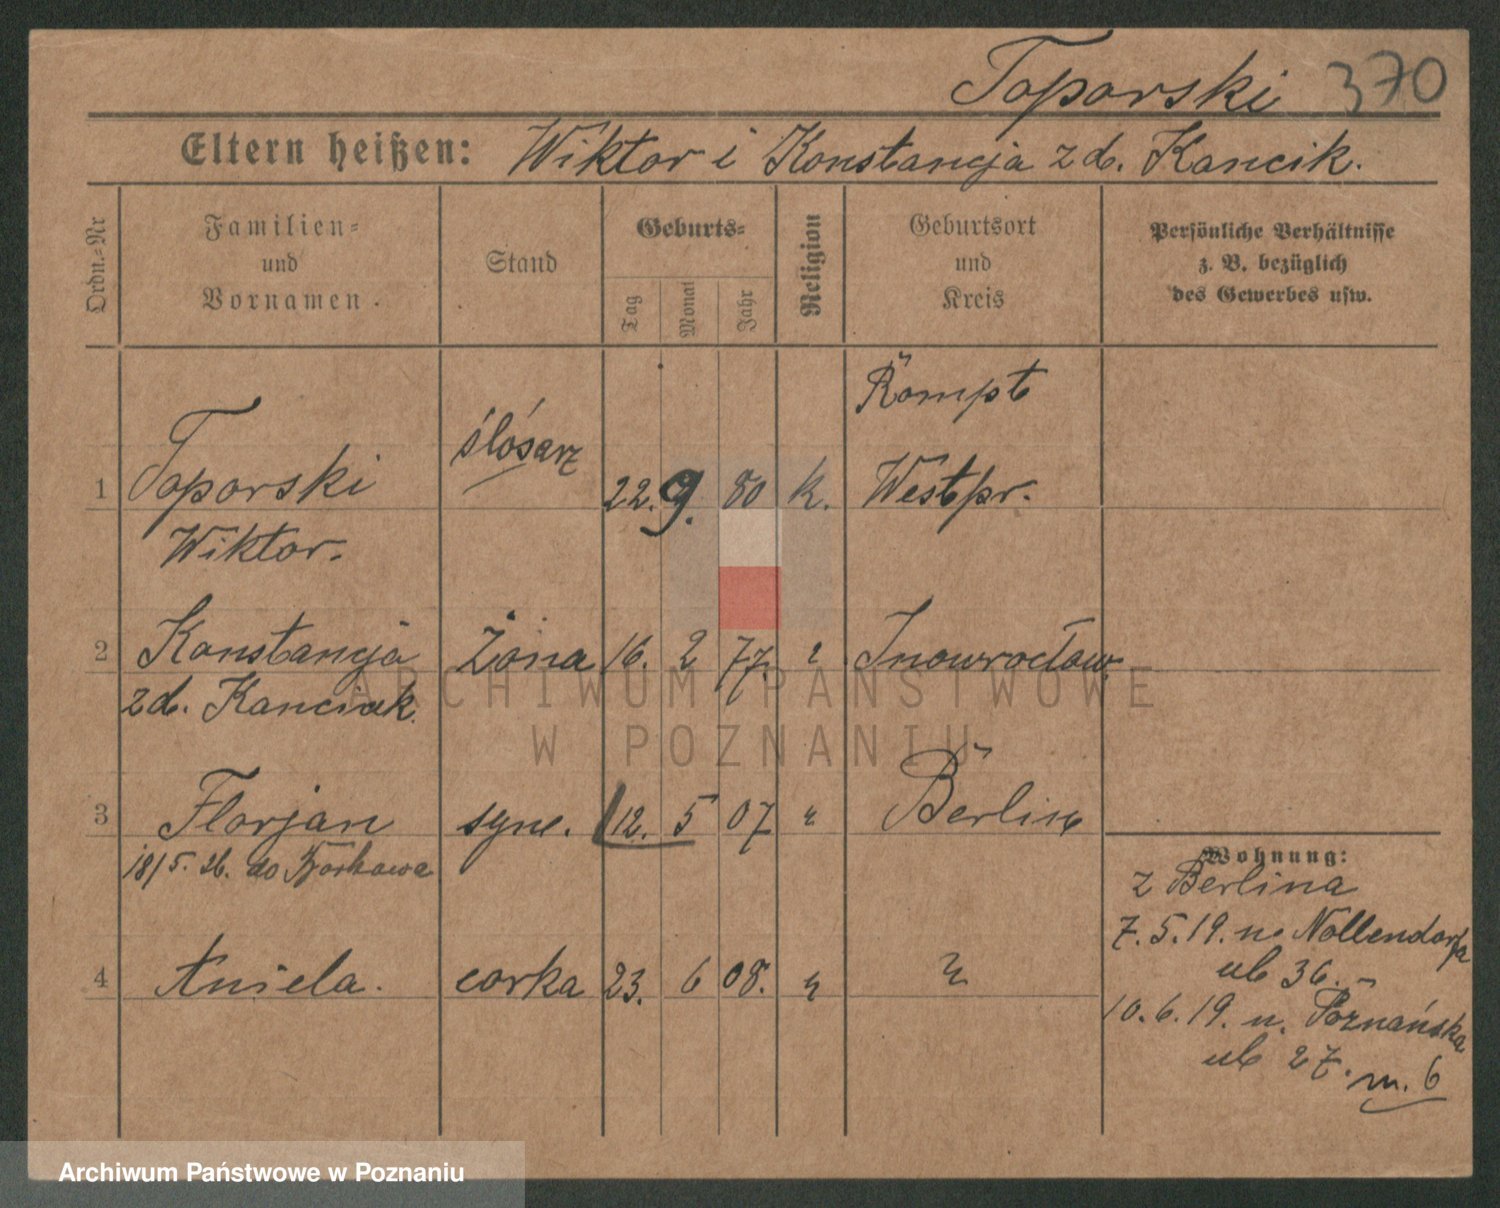 Toporski 370
Eltern heißen: Wiktor i Konstancja z d. Kancik.
Ordn.-Nr
Familien-
und
Vornamen.
Stand
Geburts-
Tag
Monat
Jahr
Religion
Geburtsort
und
Kreis
Persönliche Verhältnisse
z. B. bezüglich
des Gewerbes usw.
1 Toporski ślósarz 22. 9. 80 k. Rompt
Westpr.
Wiktor.
2 Konstancja Żona 16. 2 77. Inowrocław
z d. Kanciak.
3 Florjan syne. 12. 5 07 Berlin
18/5. 26. do
4 Aniela. corka 23. 6 08.
Wohnung:
z Berlina
7. 5. 19. n. Nollendorfa
ul 36.-
10. 6. 19. n. Poznańska
ul 27. m. 6
ARCHIWUM PAŃSTWOWE
W POZNANIU
Archiwum Państwowe w Poznaniu